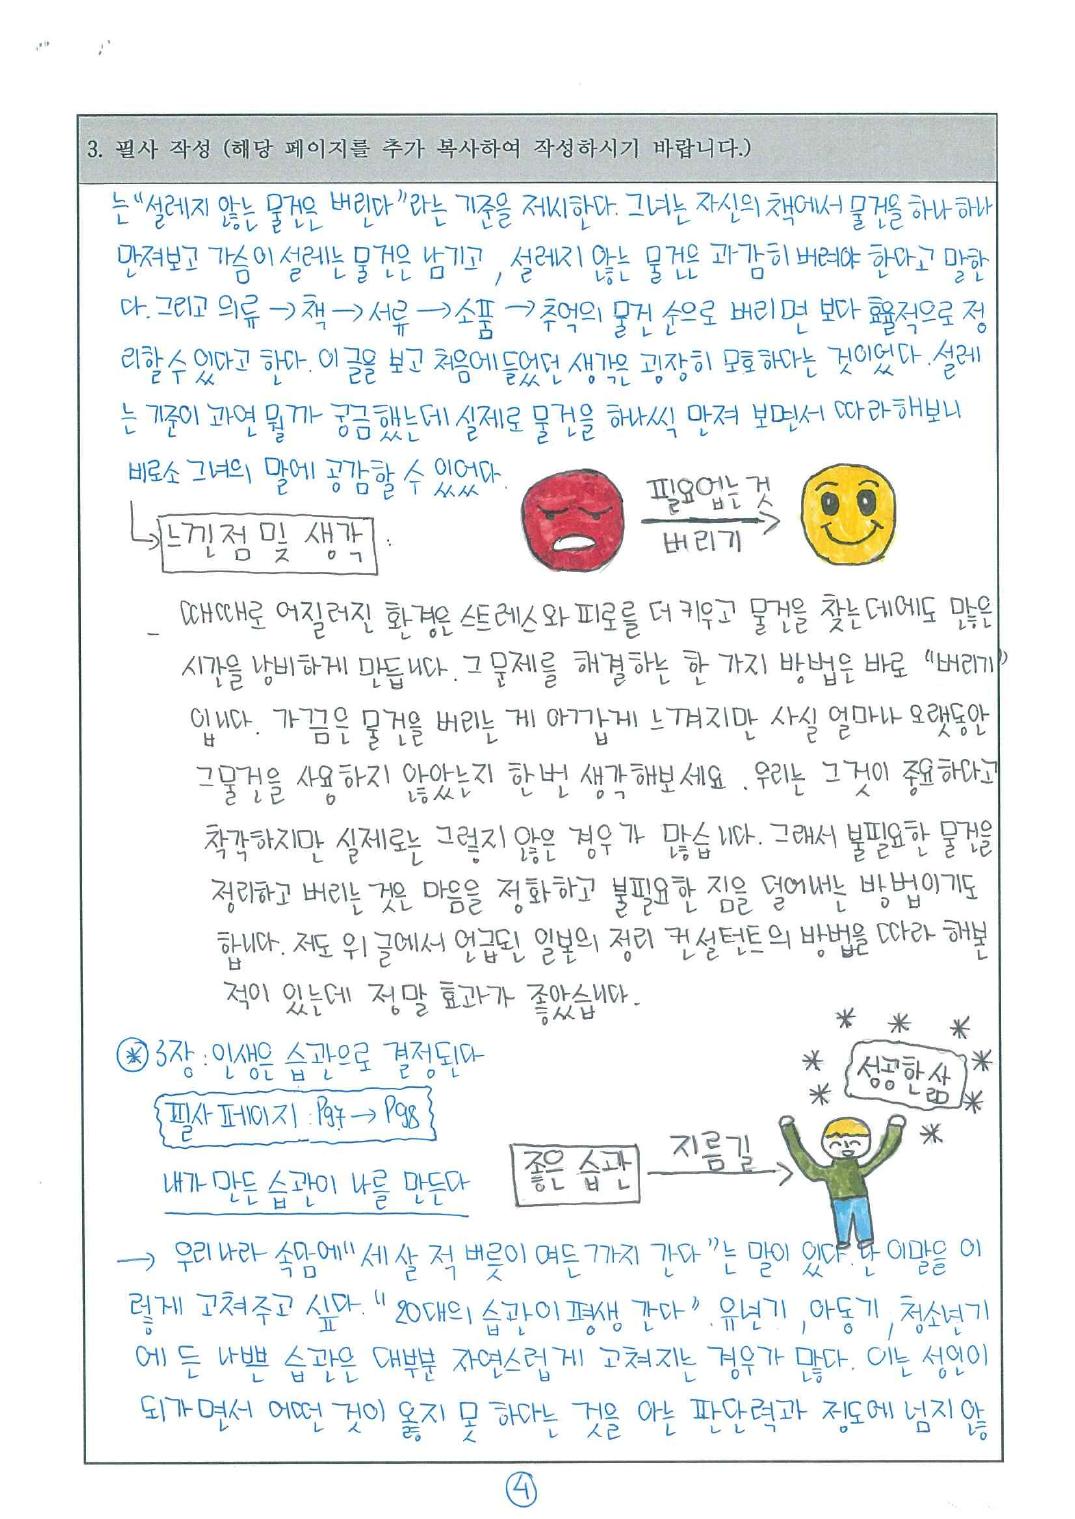 3. 필사 작성 (해당 페이지를 추가 복사하여 작성하시기 바랍니다.)
는 "설레지 않는 물건은 버린다"라는 기준을 제시한다. 그녀는 자신의 책에서 물건을 하나 하나
만져보고 가슴이 설레는 물건은 남기고, 설레지 않는 물건은 과감히 버려야 한다고 말한
다. 그리고 의류 → 책 → 서류 → 소품 → 추억의 물건 순으로 버리면 보다 효율적으로 정
리할 수 있다고 한다. 이 글을 보고 처음에 들었던 생각은 굉장히 모호하다는 것이었다. 설레
는 기준이 과연 뭘까 궁금했는데 실제로 물건을 하나씩 만져 보면서 따라해보니
비로소 그녀의 말에 공감할 수 있었다.
필요없는 것
버리기
느낀점 및 생각 :
- 때때로 어질러진 환경은 스트레스와 피로를 더 키우고 물건을 찾는데에도 많은
시간을 낭비하게 만듭니다. 그 문제를 해결하는 한 가지 방법은 바로 "버리기"
입니다. 가끔은 물건을 버리는 게 아깝게 느껴지만 사실 얼마나 오랫동안
그물건을 사용하지 않았는지 한번 생각해보세요. 우리는 그것이 중요하다고
착각하지만 실제로는 그렇지 않은 경우가 많습니다. 그래서 불필요한 물건을
정리하고 버리는 것은 마음을 정화하고 불필요한 짐을 덜어내는 방법이기도
합니다. 저도 위 글에서 언급된 일본의 정리 컨설턴트의 방법을 따라 해본
적이 있는데 정말 효과가 좋았습니다.
* 3장 : 인생은 습관으로 결정된다
성공한 삶
필사 페이지 : P97 → P98
좋은 습관
지름길
내가 만든 습관이 나를 만든다
→ 우리나라 속담에 "세 살 적 버릇이 여든까지 간다"는 말이 있다. 난 이말을 이
렇게 고쳐주고 싶다. "20대의 습관이 평생 간다". 유년기, 아동기, 청소년기
에 든 나쁜 습관은 대부분 자연스럽게 고쳐지는 경우가 많다. 이는 성인이
되가면서 어떤 것이 옳지 못 하다는 것을 아는 판단력과 정도에 넘지 않
4